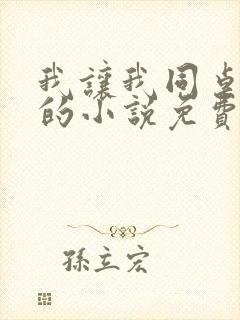 我讓我同桌
的小說免費
孫立宏